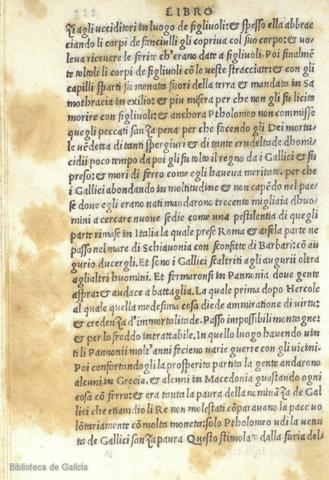 LIBRO
agli ucciditori in luogo de figliuoli: & spesso ella abbrac
ciando li corpi de fanciulli gli copriua col suo corpo: & uo
leua riceuere le ferite ch'erano date a figliuoli. Poi finalmē
te toltoli li corpi de figliuoli cō le ueste stracciate: & con gli
capilli sparti fu menata fuori della terra & mandata in Sa
mothracia in exilio: & piu misera per che non gli fu licito
morire con figliuoli: & anchora Ptholomeo non commisse
que gli peccati sanza pena per che facendo gli Dei morta
le uēdetta di tanti spergiuri & di tante crudelta de dhomi
cidii poco tempo da poi gli fu tolto il regno da i Gallici & fu
preso: & mori di ferro come egli haueua meritato. per che
i Gallici abondando in moltitudine & non capēdo nel pae
se doue egli erano nati mandarono trecento migliaia dhuo
mini a cercare nuoue sedie come una pestilentia di quegli
parte rimase in Italia la quale prese Roma & arsela parte ne
passo nel mare di Schiauonia con sconfitte di Barbari: cō au
gurio ducergli. Et sono i Gallici scaltriti agli augurii oltra
agli altri huomini. Et fermaronsi in Pannonia doue gente
aspra: & audace a battaglia. La quale prima dopo Hercole
al quale quella medesima cosa diede ammiratione di uirtu:
& credenza d'immortalitade. Passo impossibili montagne
& per lo freddo intrattabile. In quello luogo hauendo uin
ti li Pannonii molt'anni fecieno uarie guerre con gli uicini.
Poi confortandogli la prosperita partita la gente andarono
alcuni in Grecia. & alcuni in Macedonia guastando ogni
cosa cō ferro: & era tanta la paura della nominanza de Gal
lici che etiandio li Re non molestati cōparauano la pace uo
lōtariamente cō molta moneta: solo Ptholomeo udi la uenu
ta de Gallici sanza paura Questo stimolato dalla furia del
Biblioteca de Galicia